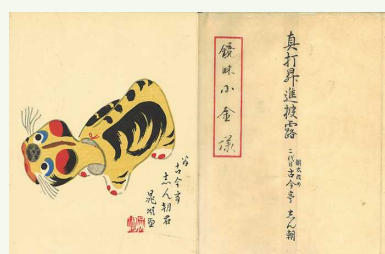 真打昇進披露
朝太改め
二代目古今亭志ん朝
鏡味小金様
為
古今亭
志ん朝君